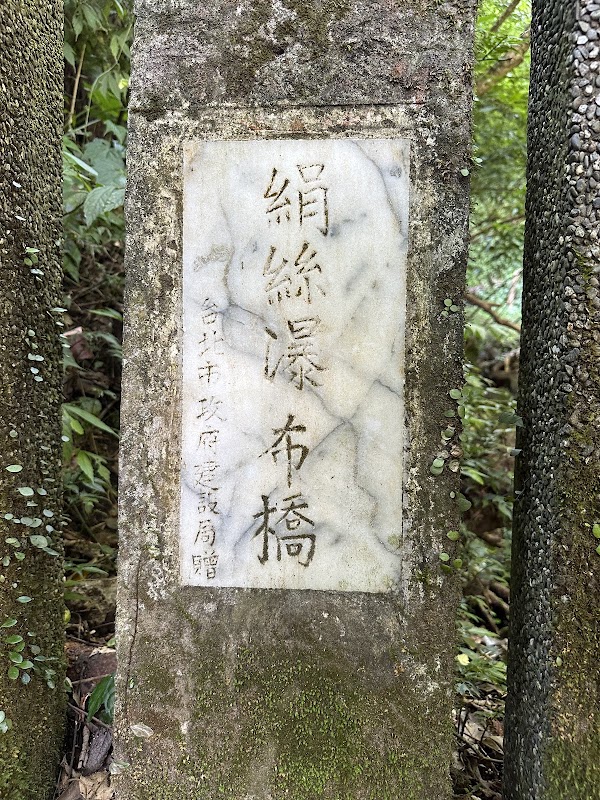 絹絲瀑布橋
台北市政府建設局贈